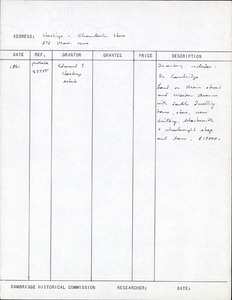 ADDRESS: Hastings - Chamberlin Store
872 Main
DATE REF. GRANTOR GRANTEE PRICE DESCRIPTION
1861 probate Edward T. Hastings estate
Inventory includes:
In Cambridge
Land on Main street
and Western Avenue
with double dwelling
house, store, new
building, blacksmith
+ wheelwright shop
and barn,
CAMBRIDGE HISTORICAL COMMISSION RESEARCHER: DATE: